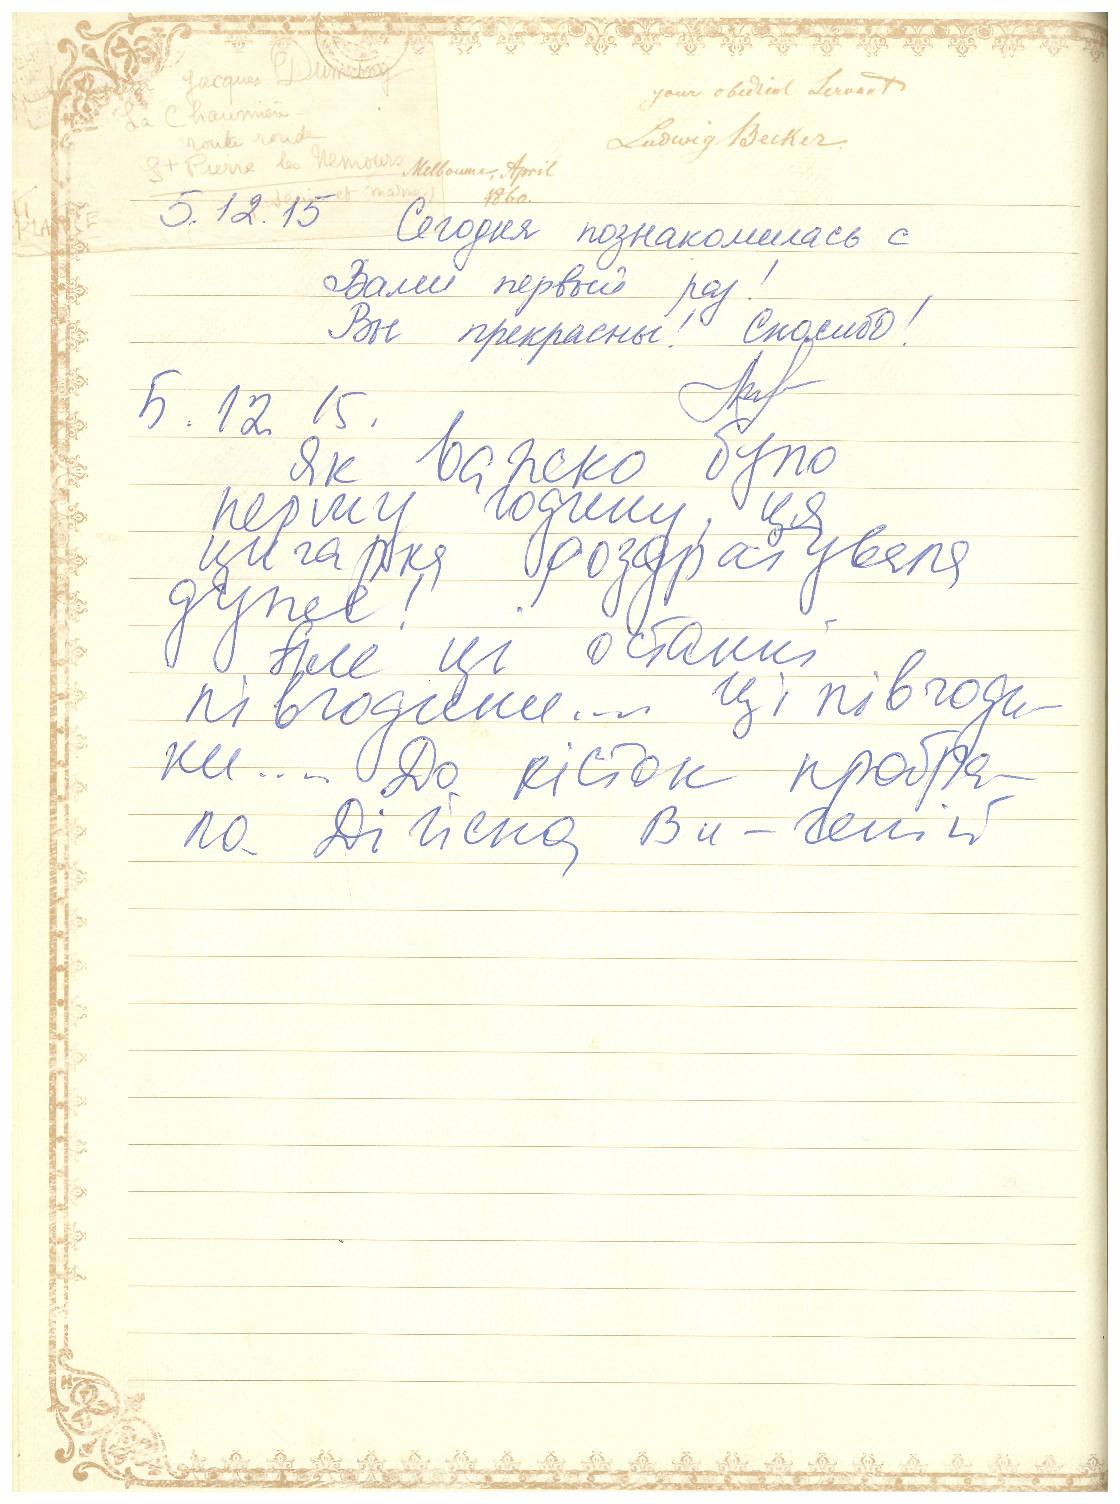 Jacques Dumesny
La Chaumière
route ronde
St Pierre les Nemours
seine et marne
your obedient Servant
Ludwig Becker.
Melbourne, April
1860.
5.12.15 Сегодня познакомилась с
Вами первый раз!
Вы прекрасны! Спасибо!
5.12.15.
Як важко було
першу годину, ця
цигарка роздратувала
дуже!
Але ці останні
півгодини... Ці півгоди-
ни... До кісток пробра-
ла Дійсно, Ви - геній